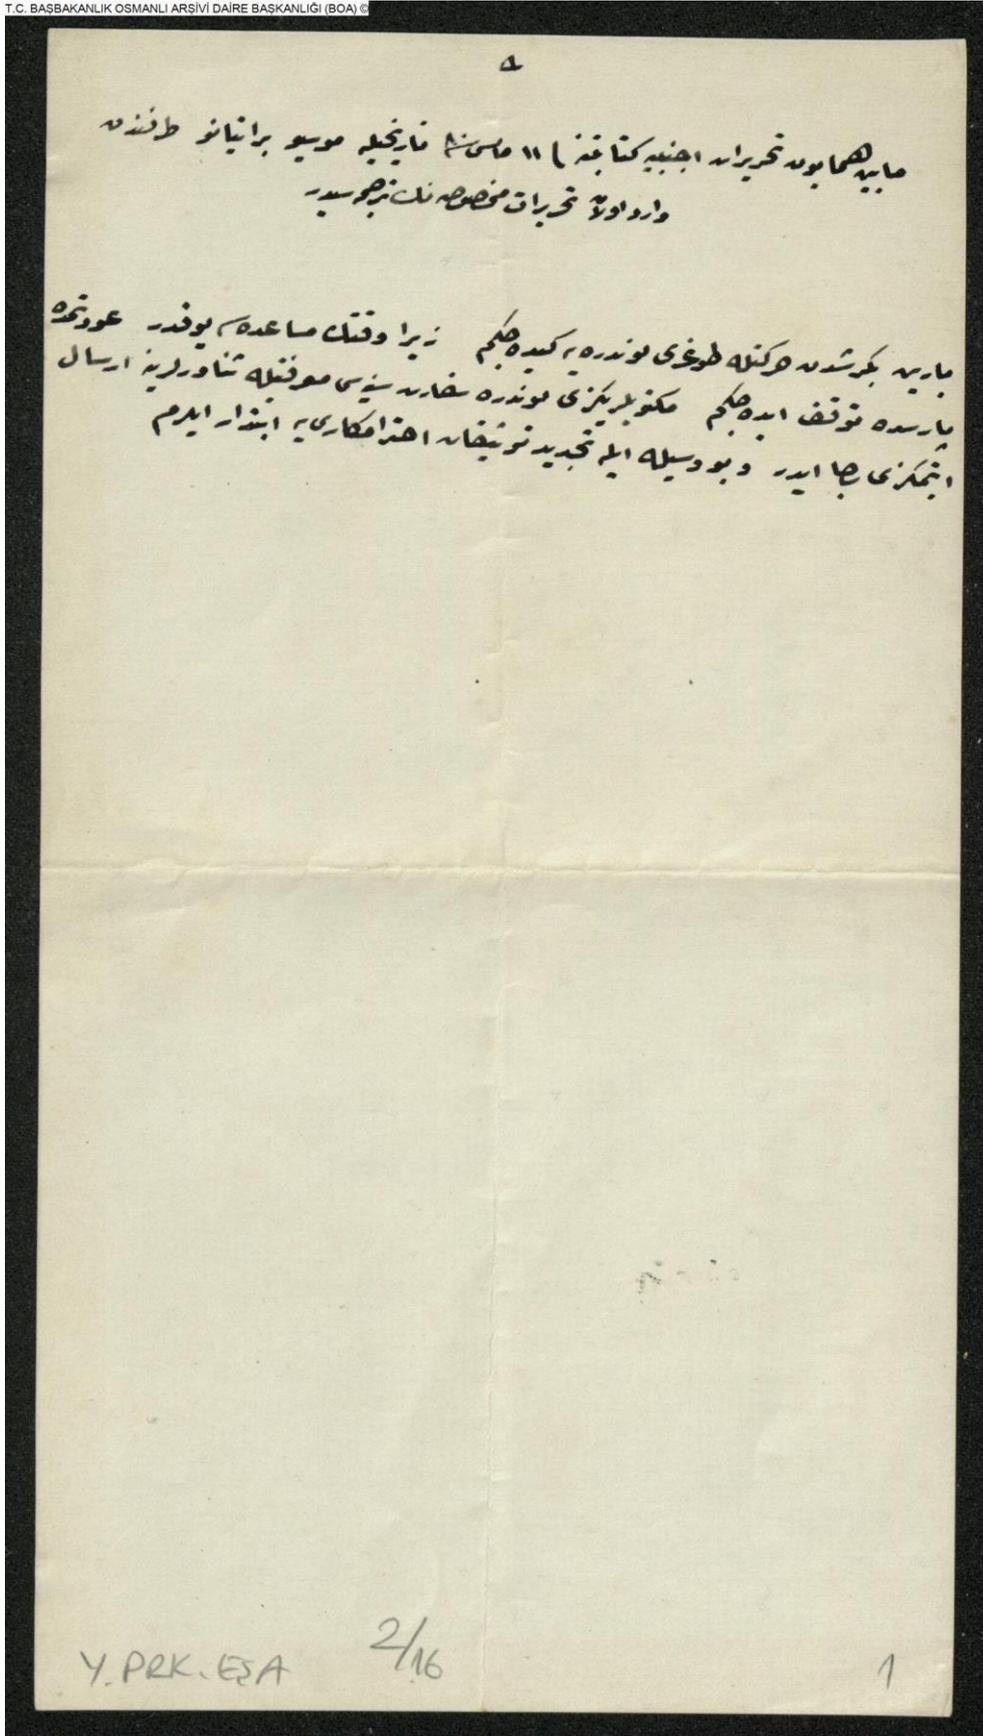 T.C. BAŞBAKANLIK OSMANLI ARŞİVİ DAİRE BAŞKANLIĞI (BOA) ©
مابين همايون تحريرات اجنبيه كتابتنه ١١ مارس تاريخيله موسيو براتيانو طرفندن
وارد اولان تحريرات مخصوصه نك ترجمه سيدر
يارين بكرشدن حركتله طوغرى لوندره يه كيده جكم زيرا وقتك مساعده سى يوقدر عودتمده
پارسده توقف ايده جكم مكتوبلريكزى لوندره سفارت سنيه سى معرفتيله ارسال
ايتمكزى رجا ايدر و بو وسيله ايله تجديد احترامكارى يه ابتدار ايلرم
Y.PRK.EŞA
2/16
1